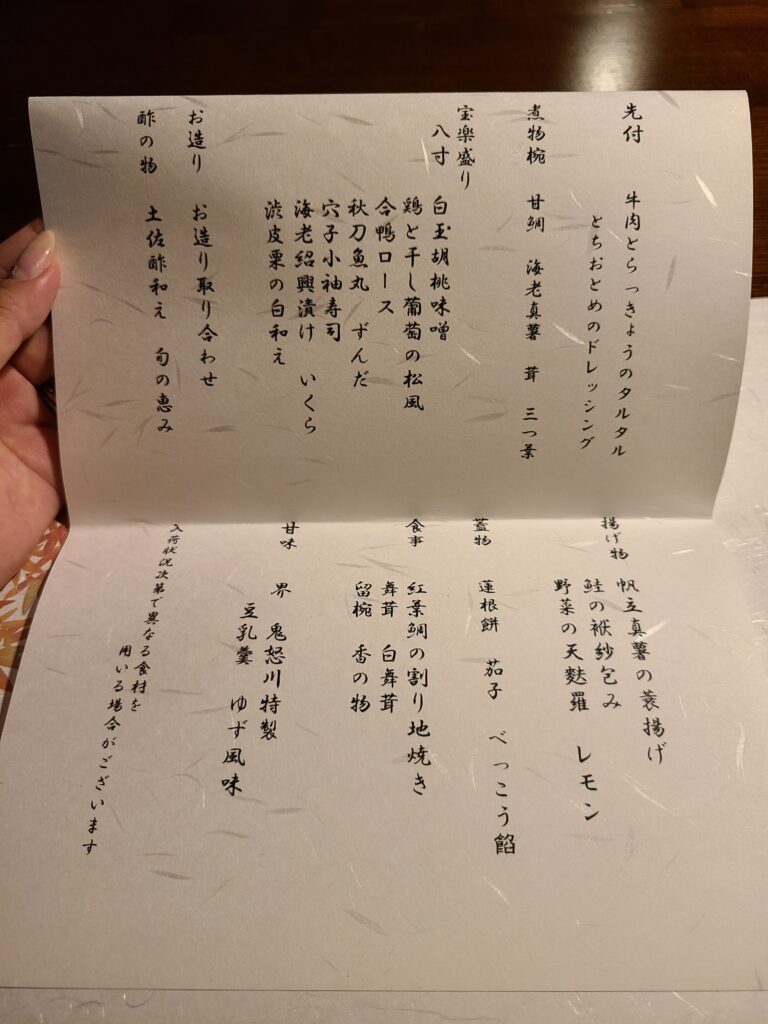 先付　牛肉とらっきょうのタルタル
とちおとめのドレッシング
煮物椀　甘鯛　海老真薯　茸　三つ葉
宝楽盛り
八寸　白玉胡桃味噌
鶏と干し葡萄の松風
合鴨ロース
秋刀魚丸　ずんだ
穴子小袖寿司
海老紹興漬け　いくら
渋皮栗の白和え
お造り　お造り取り合わせ
酢の物　土佐酢和え　旬の恵み
揚げ物　帆立真薯の蓑揚げ
鮭の袱紗包み
野菜の天麩羅　レモン
蓋物　蓮根餅　茄子　べっこう餡
食事　紅葉鯛の割り地焼き
舞茸　白舞茸
留椀　香の物
甘味　界　鬼怒川特製
豆乳羹　ゆず風味
入荷状況次第で異なる食材を
用いる場合がございます